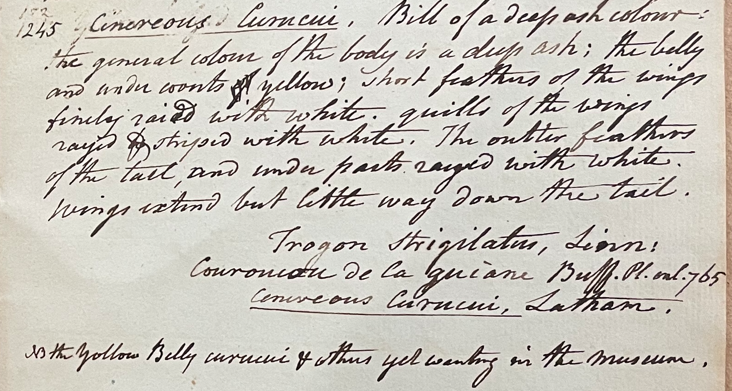 1245 Cinereous Curucui. Bill of a deep ash colour:
the general colour of the body is a deep ash; the belly
and under coverts of yellow; short feathers of the wings
finely raied with white. quills of the wings
rayed & striped with white. The outer feathers
of the tail, and under parts rayed with white.
Wings extend but little way down the tail.
Trogon Strigilatus, Linn:
Couroucou de la guiane Buff. Pl. enl. 765
Cenereous Curucui, Latham.
NB the Yellow Belly curucui & others yet wanting in the Museum.